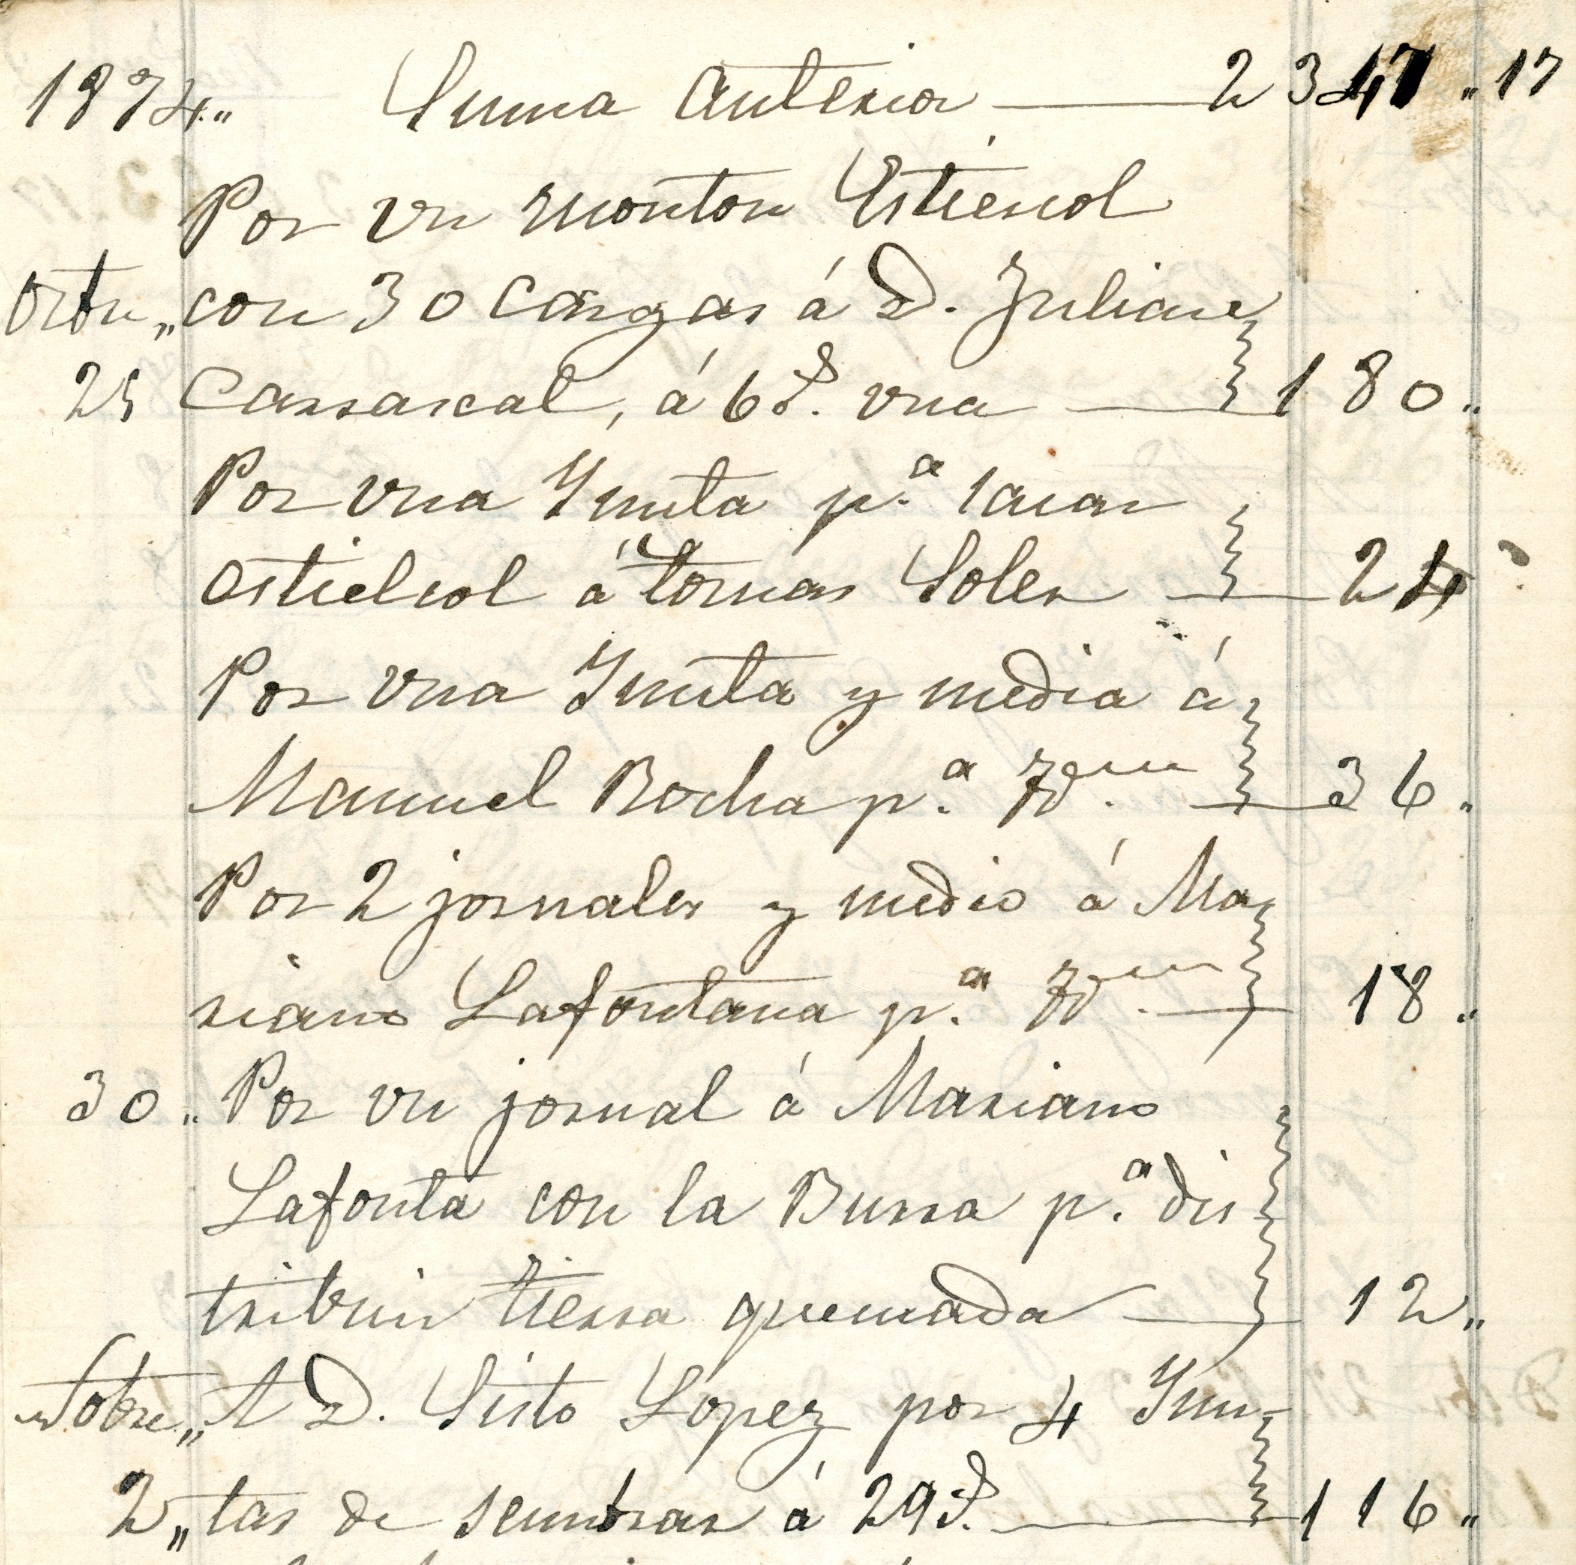 1874„ Suma anterior — 2347 „ 17
Por un monton Estiércol
Octu „ con 30 Cargas á D. Julian
25 Carrascal, á 6 rs. una — 180 „
Por una Yunta p.a sacar
estielcol á tomas Soler — 24
Por una Yunta y media á
Manuel Rocha p.a Ydem — 36 „
Por 2 jornales y medio á Ma
riano Lafontana p.a Ydem — 18 „
30 „ Por un jornal á Mariano
Lafonta con la Burra p.a dis-
tribuir tierra quemada — 12 „
Nobre „ A D. Sisto Lopez por 4 Yun-
2 „ tas de sembrar á 29 rs. — 116 „